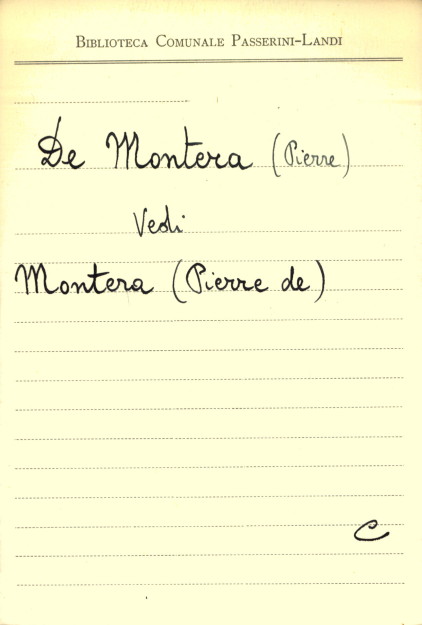 Biblioteca Comunale Passerini-Landi
De Montera (Pierre)
Vedi
Montera (Pierre de)
C